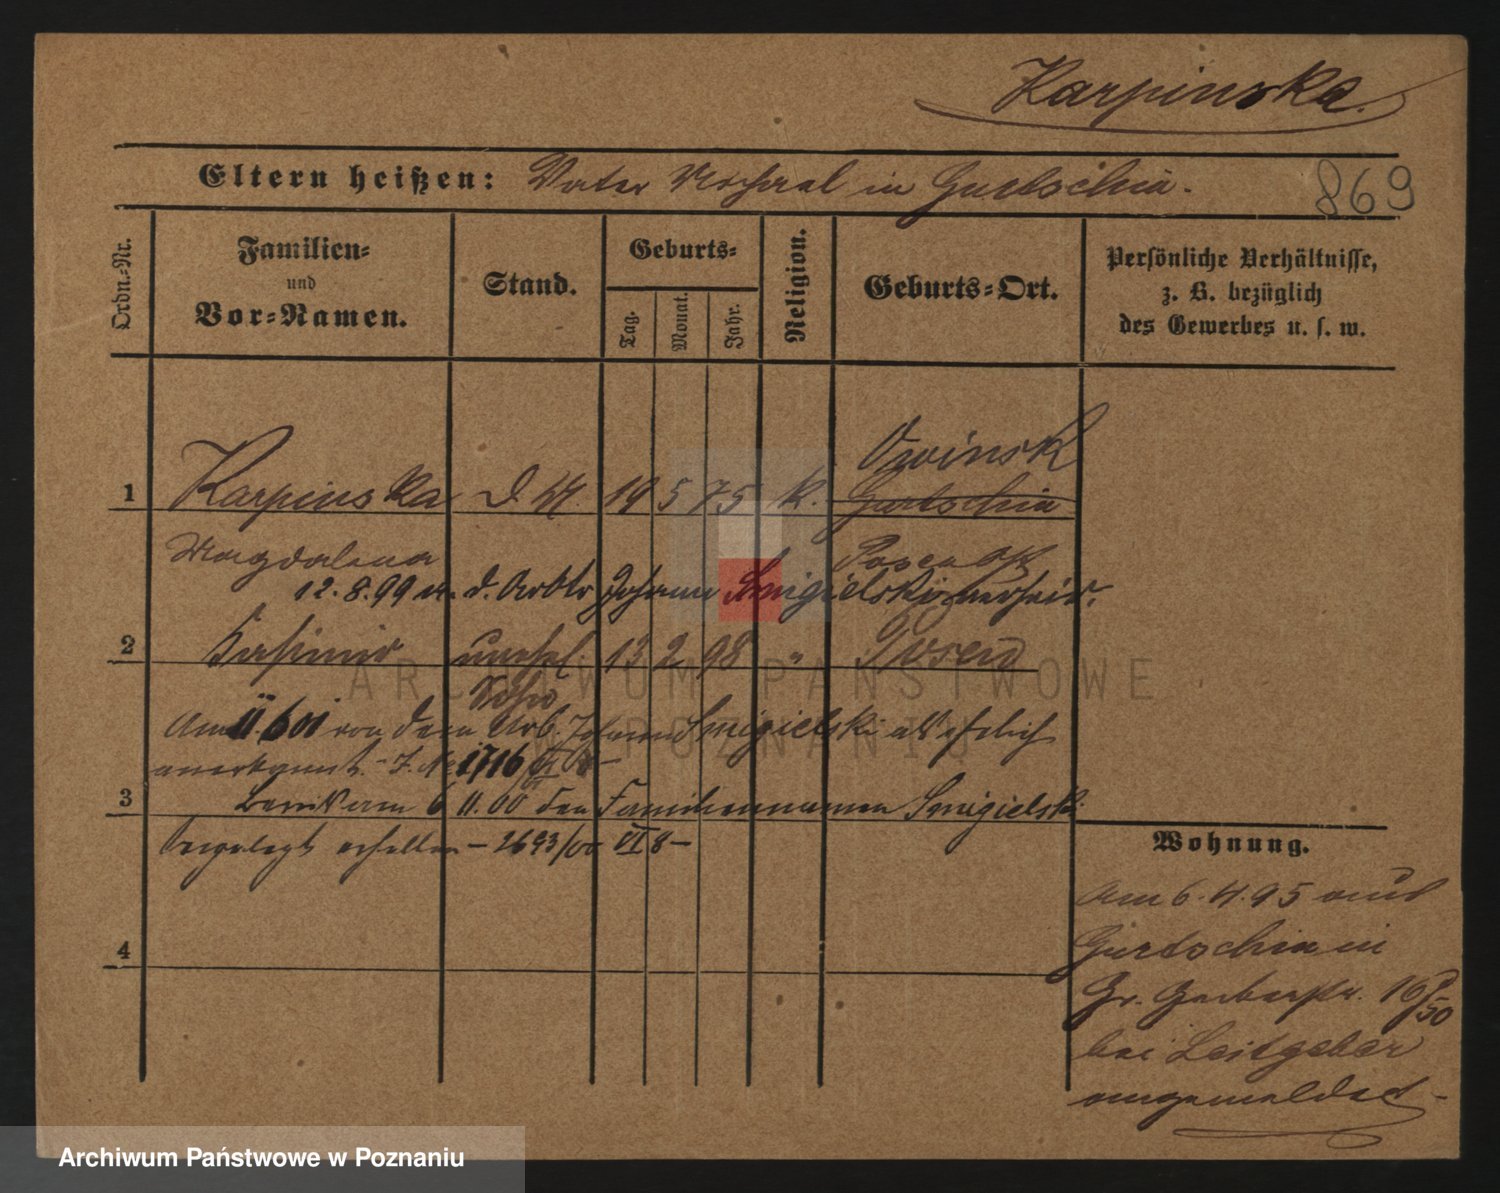 Karpinska.
Eltern heißen: Vater Michael in Gurtschin.
869
Ordn.-Nr.
Familien-
und
Vor-Namen.
Stand.
Geburts-
Tag.
Monat.
Jahr.
Religion.
Geburts-Ort.
Persönliche Verhältnisse,
z. B. bezüglich
des Gewerbes u. s. w.
Owinsk
1 Karpinska d. M. 14 5 75 k. Gurtschin
Magdalena Posen
12.8.99 m. d. Arbtr Johann Smigielski verheir.
2 Kasimir unehel. 13 2 98 " Posen
Sohn
Am 11.6 01 von dem Arb. Johann Smigielski als ehelich
anerkannt. - J. No 1716
3 am 6 11.00 den Familiennamen Smigielski
beigelegt erhalten - 2693/00 VI 8 -
4
Wohnung.
Am 6.4.95 aus
Gurtschin in
Gr. Gerberstr. 16/50
bei Leitgeber
angemeldet -
ARCHIWUM PAŃSTWOWE
W POZNANIU
Archiwum Państwowe w Poznaniu